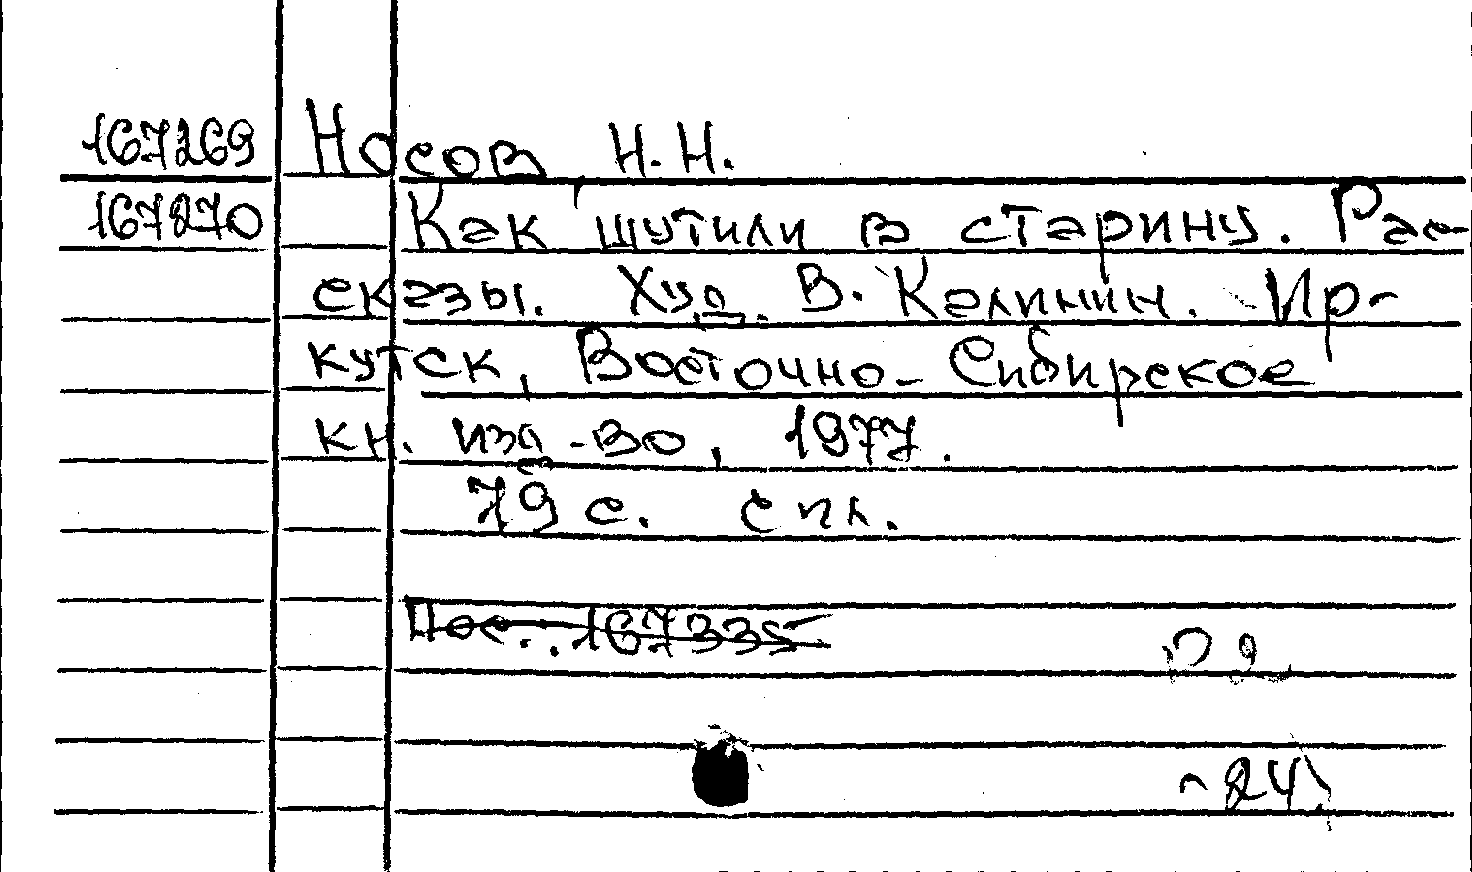 167269 Носов Н.Н.
167270 Как шутили в старину. Рас-
сказы. Худ. В. Калинин. Ир-
кутск, Восточно-Сибирское
кн. изд-во, 1977.
79 с. с ил.
Пос. 167335